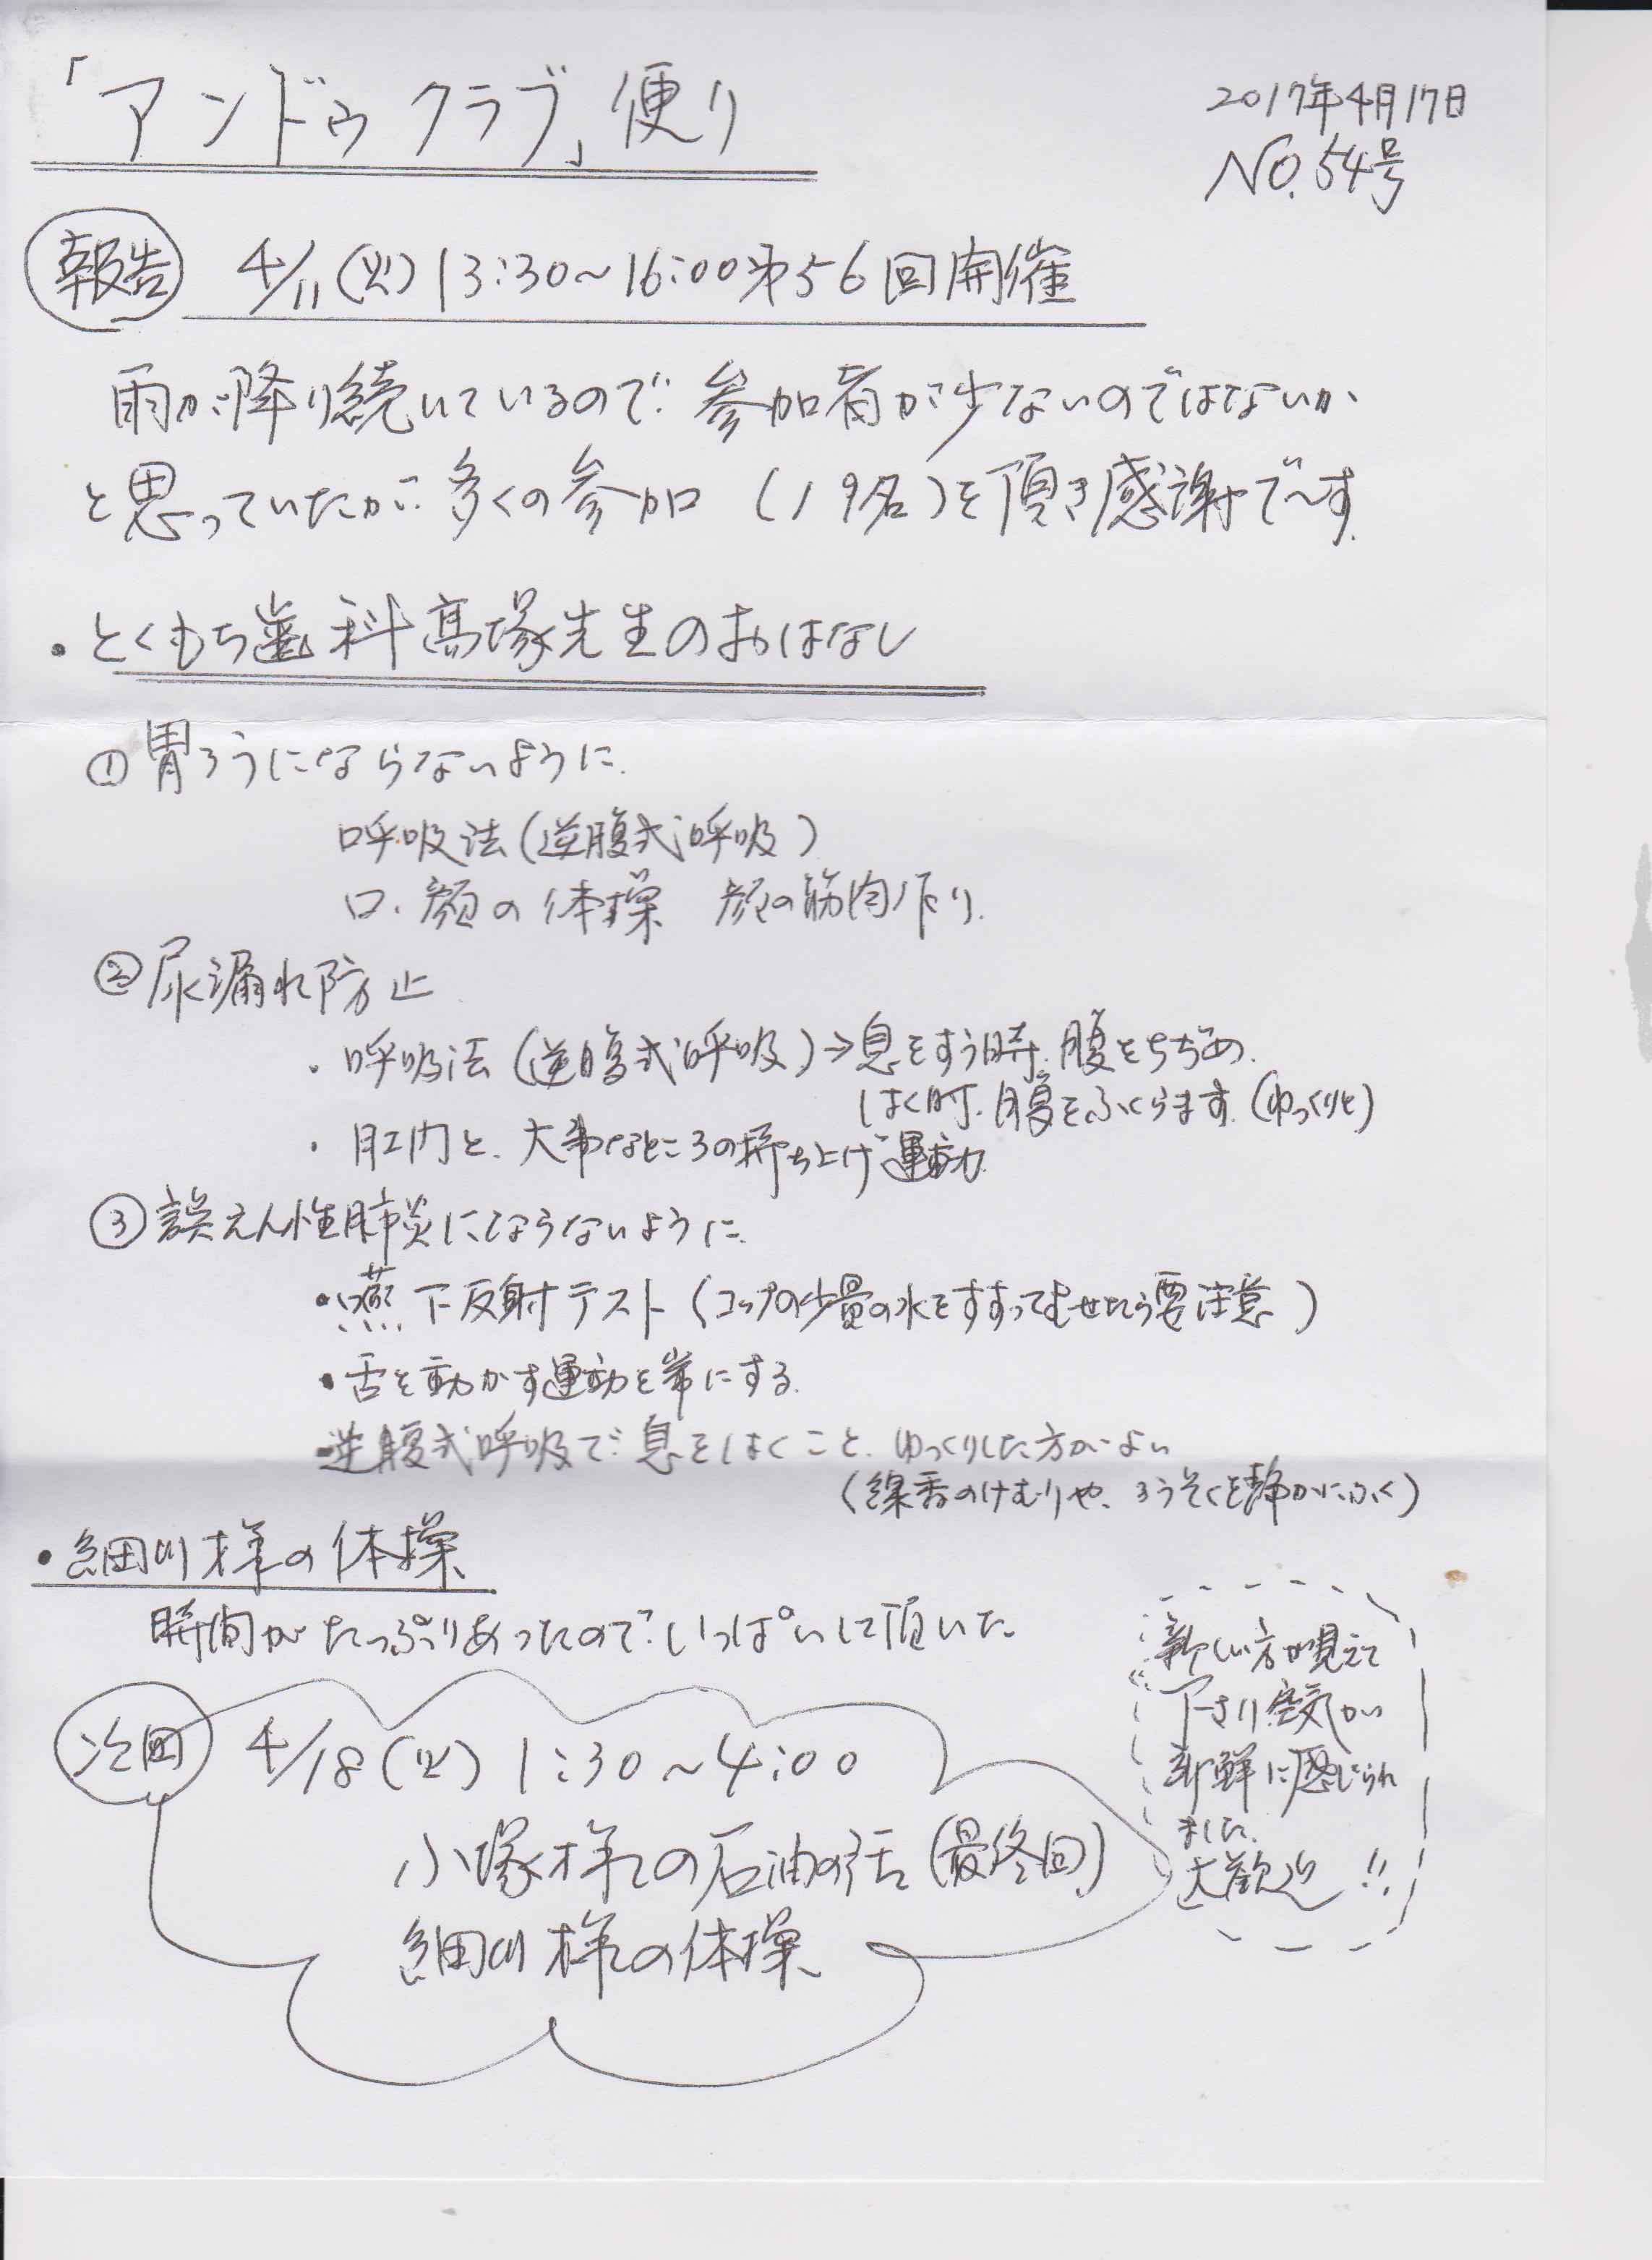 「アンドゥクラブ」便り
2017年4月17日
NO.54号
報告 4/11(火)13:30～16:00第56回開催
雨が降り続いているので、参加者が少ないのではないか
と思っていたが、多くの参加(19名)を頂き感謝で〜す。
・とくもち歯科髙塚先生のおはなし
①胃ろうにならないように
呼吸法(逆腹式呼吸)
口、顔の体操 顔の筋肉作り
②尿漏れ防止
・呼吸法(逆腹式呼吸)→息をすう時、腹をちぢめ、
はく時、腹をふくらます。(ゆっくりと)
・肛門と、大事なところの持ち上げ運動
③誤えん性肺炎にならないように
・嚥下反射テスト(コップの少量の水をすすってむせたら要注意)
・舌を動かす運動を常にする。
・逆腹式呼吸で息をはくこと、ゆっくりした方がよい
(線香のけむりや、ろうそくを静かにふく)
・細川様の体操
時間がたっぷりあったので、いっぱいして頂いた。
新しい方が見えて
下さり空気が
新鮮に感じられ
ました。
大歓迎!!
次回 4/18(火)1:30～4:00
小塚様の石油の話(最終回)
細川様の体操